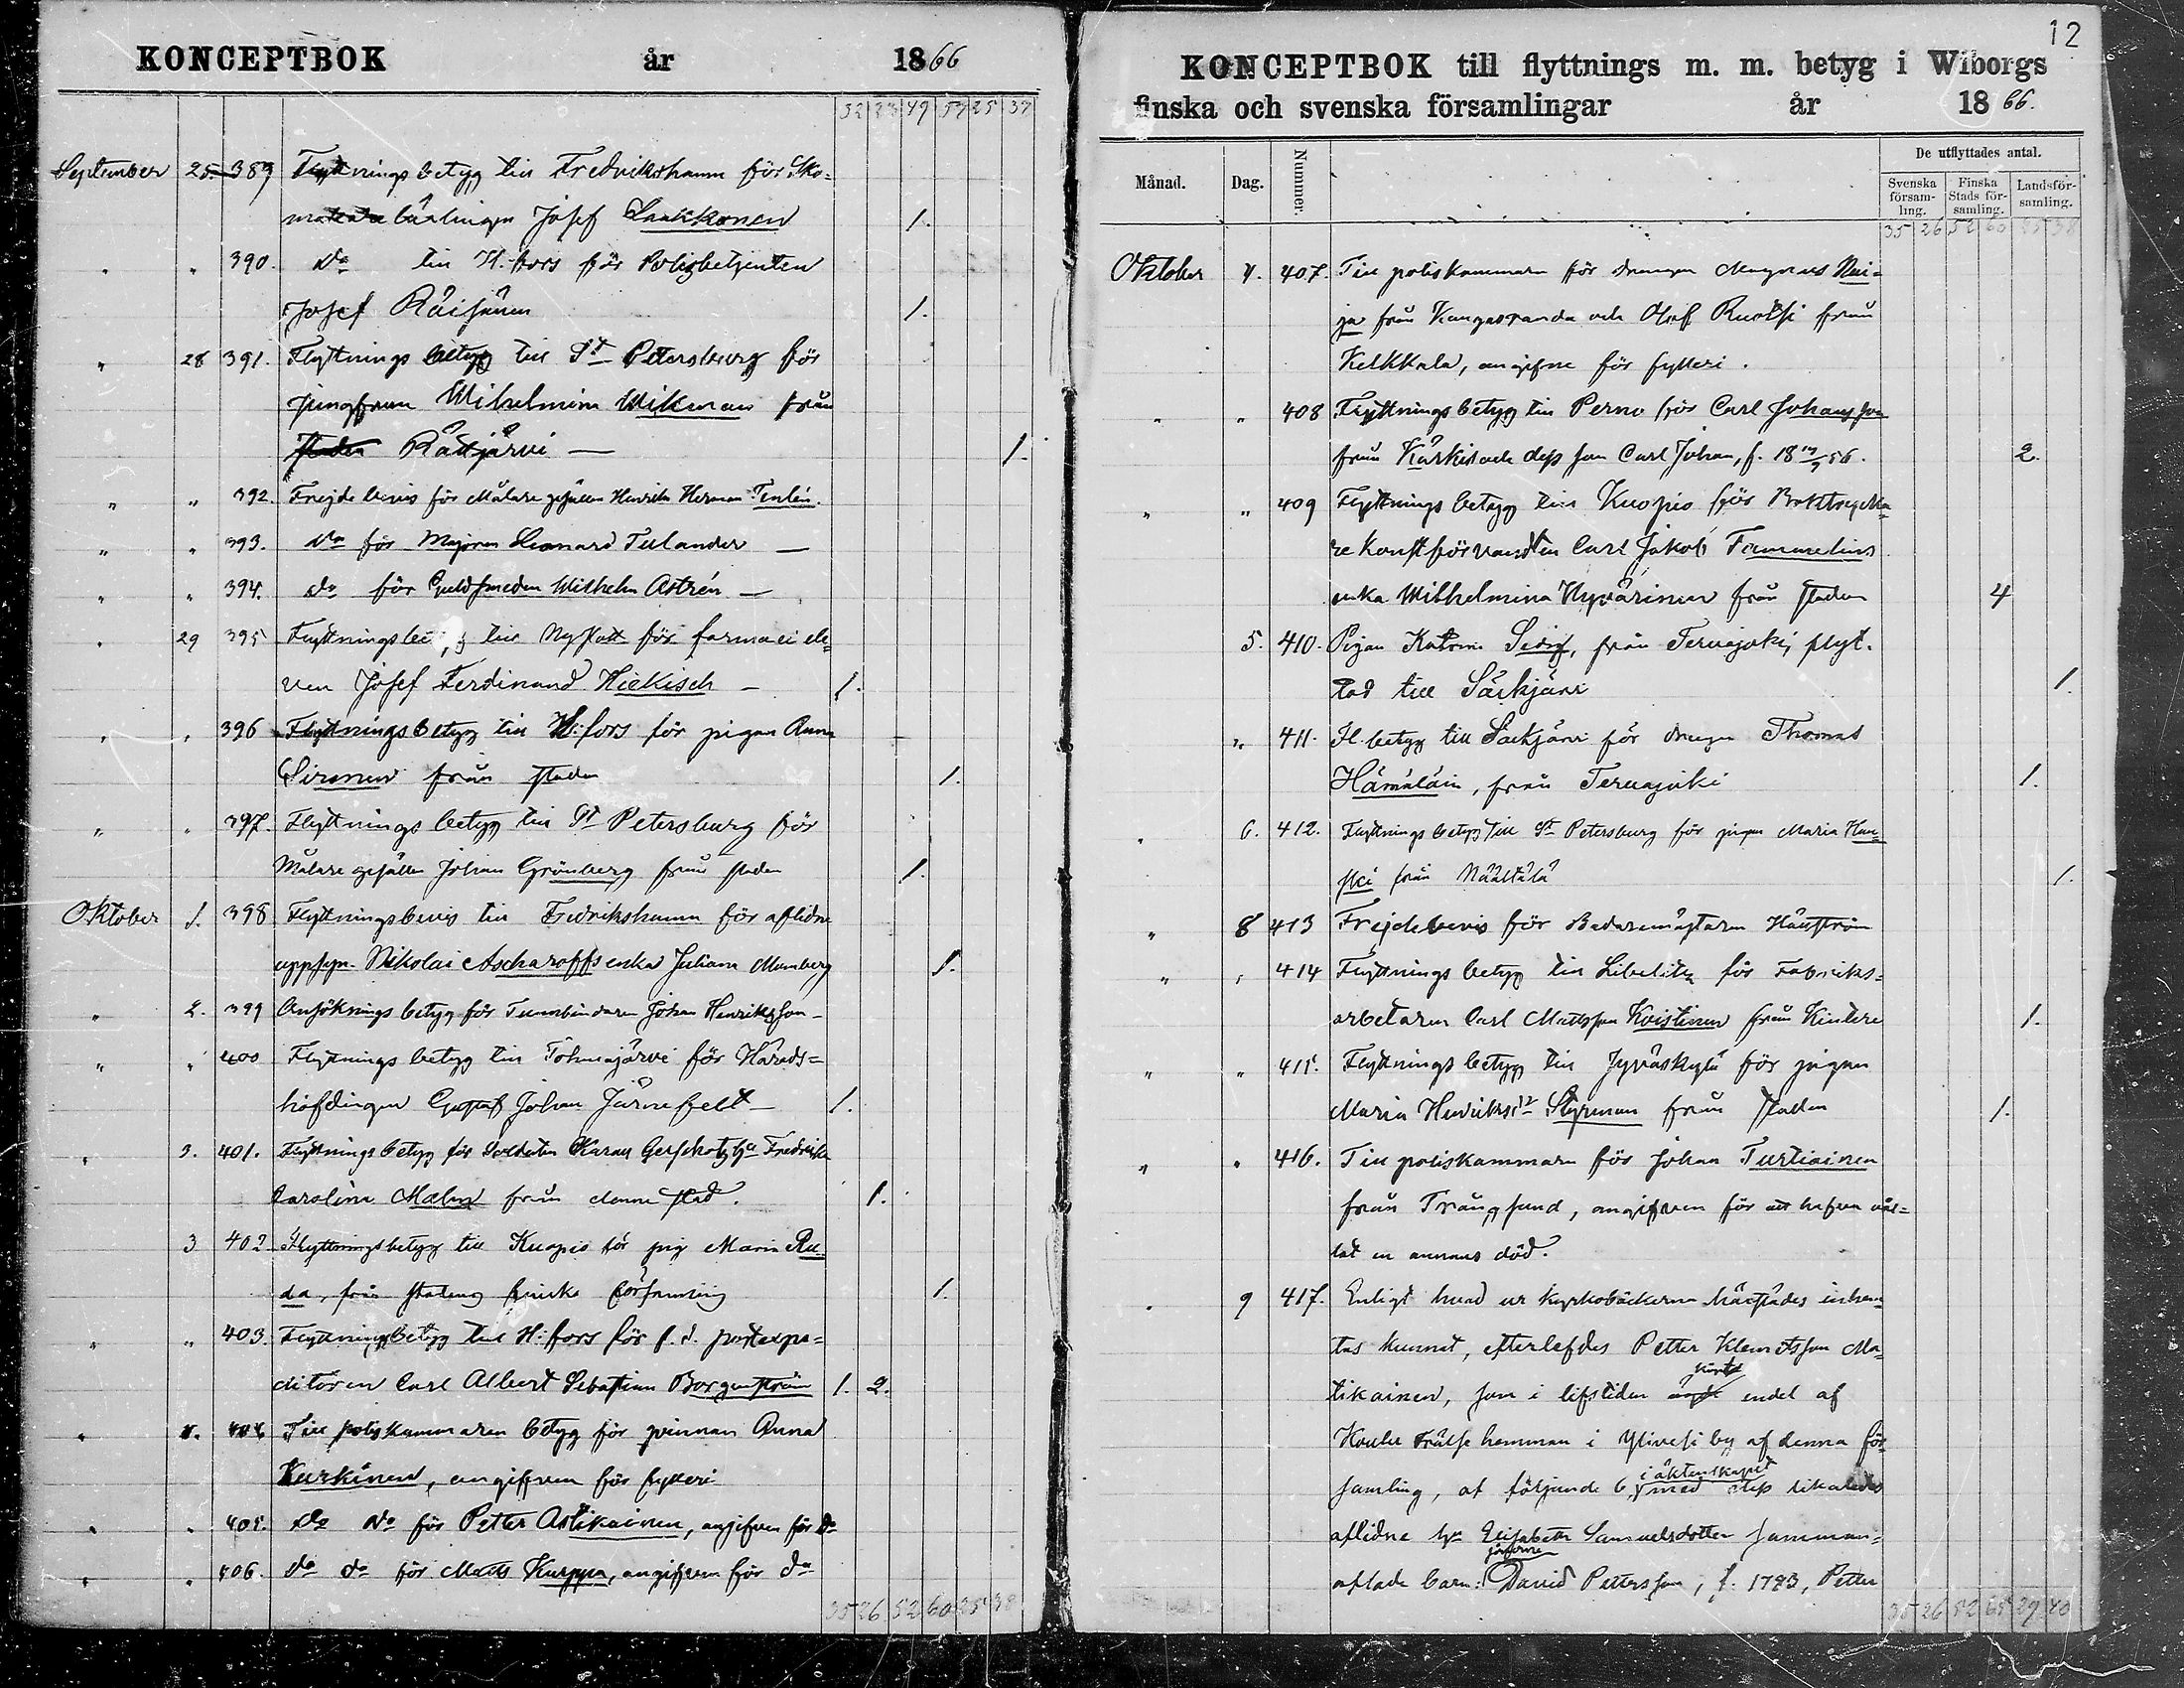 KONCEPTBOK år 1866
32 23 49 57 25 37
September 25. 389 Flyttningsbetyg till Fredrikshamn för Sko-
makare lärlingen Josef Laakkonen 1.
" " 390. do till H.fors för Polisbetjenten
Josef Räisänen 1.
" 28 391. Flyttningsbetyg till St Petersburg för
jungfrun Wilhelmina Wikman från
staden Rättjärvi — 1.
" " 392. Frejdebevis för Målare gesällen Henrik Herman Tenlén.
" " 393. do för Majoren Leonard Tulander —
" " 394. do för Guldsmeden Wilhelm Astrén —
" 29 395 Flyttningsbetyg till Nyslott för farmacie ele-
ven Josef Ferdinand Hickisch — 1.
" " 396 Flyttningsbetyg till H:fors för pigan Anna
Sironen från staden 1.
" " 397. Flyttningsbetyg till St Petersburg för
Målare gesällen Johan Grönberg från staden 1.
Oktober 1. 398 Flyttningsbevis till Fredrikshamn för aflidne
uppsyn. Nikolai Ascharoffs enka Juliana Mamberg 1.
" 2. 399 Ansöknings betyg för Tunnbindaren Johan Henriksson —
" " 400 Flyttningsbetyg till Tohmajärvi för Härads-
höfdingen Gustaf Johan Järnefelt — 1.
" 3. 401. Flyttningsbetyg för Soldaten Karau hu Fredrika
Carolina Malm från denna stad. 1.
3 402 Flyttningsbetyg till Kuopio för pig Maria Ru-
da, från stadens finska församling 1.
" " 403. Flyttningsbetyg till H:fors för f.d. postexpe-
ditoren Carl Albert Sebastian Borgenström 1. 2.
" 4. 404 Till poliskammaren betyg för qvinnan Anna
Kurkinen, angifven för fylleri
" " 405. do do för Petter Astikainen, angifven för do
" " 406. do do för Matts Kurppa, angifven för do
35 26 52 60 25 38
12
KONCEPTBOK till flyttnings m. m. betyg i Wiborgs
finska och svenska församlingar år 1866.
Månad. Dag. Nummer. De utflyttades antal.
Svenska församling. Finska Stads församling. Landsförsamling.
35 26 52 60 25 38
Oktober 4. 407. Till poliskammaren för drängen Magnus Nui-
ja från Kangasranda och Olof Ruotsi från
Kelkkala, angifne för fylleri.
" " 408 Flyttningsbetyg till Perno för Carl Johansson
från Kärkis och dess son Carl Johan, f. 18 56. 2.
" " 409 Flyttningsbetyg till Kuopio för Boktrycka-
re konstförvandten Carl Jakob Fammelins
enka Wilhelmina Hyvärinen från staden 4
5. 410. Pigan Katrin, från Tervajoki, flyt-
tad till Säckjärvi 1.
" 411. Fl. betyg till Säckjärvi för drängen Thomas
Hämäläin, från Tervajoki 1.
" 6. 412. Flyttningsbetyg till St Petersburg för pigan Maria Han-
ski från Näätälä 1.
" 8 413 Frejdebevis för Badaremästaren Hällström
" " 414 Flyttningsbetyg till Libelitz för Fabriks-
arbetaren Carl Mattsson Koistinen från Kintere 1.
" " 415. Flyttningsbetyg till Jyväskylä för pigan
Maria Henriksdr Styrman från staden 1.
" " 416. Till poliskammaren för Johan Turtiainen
från Trångsund, angifven för att hafva vål-
lat en annans död.
" 9 417. Enligt hvad ur kyrkobäckerna härstädes inhem-
tas kunnat, efterlefdes Petter Klemetsson Ma-
tikainen, som i lifstiden endel af
Frälse hemman i Ylivesi by af denna för-
samling, af följande 6 i äktenskapet med dess likaledes
aflidne hu Elisabeth Samuelsdotter samman-
aflade barn: David Pettersson, f. 1793, Petter
35 26 52 65 29 40